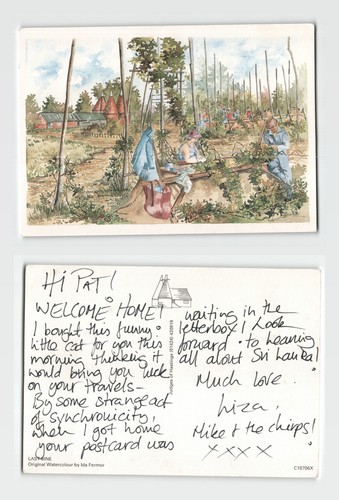 Hi PAT!
WELCOME HOME!
I bought this funny
little cat for you this
morning thinking it
would bring you luck
on your travels—
By some strange act
of synchronicity,
when I got home
your postcard was
waiting in the
letterbox! Look
forward to hearing
all about Sri Lanka!
Much love
Liza,
Mike & the chirps!
x x x x
Judges of Hastings (01424) 420919
Original Watercolour by Ida Fermor
C10706X